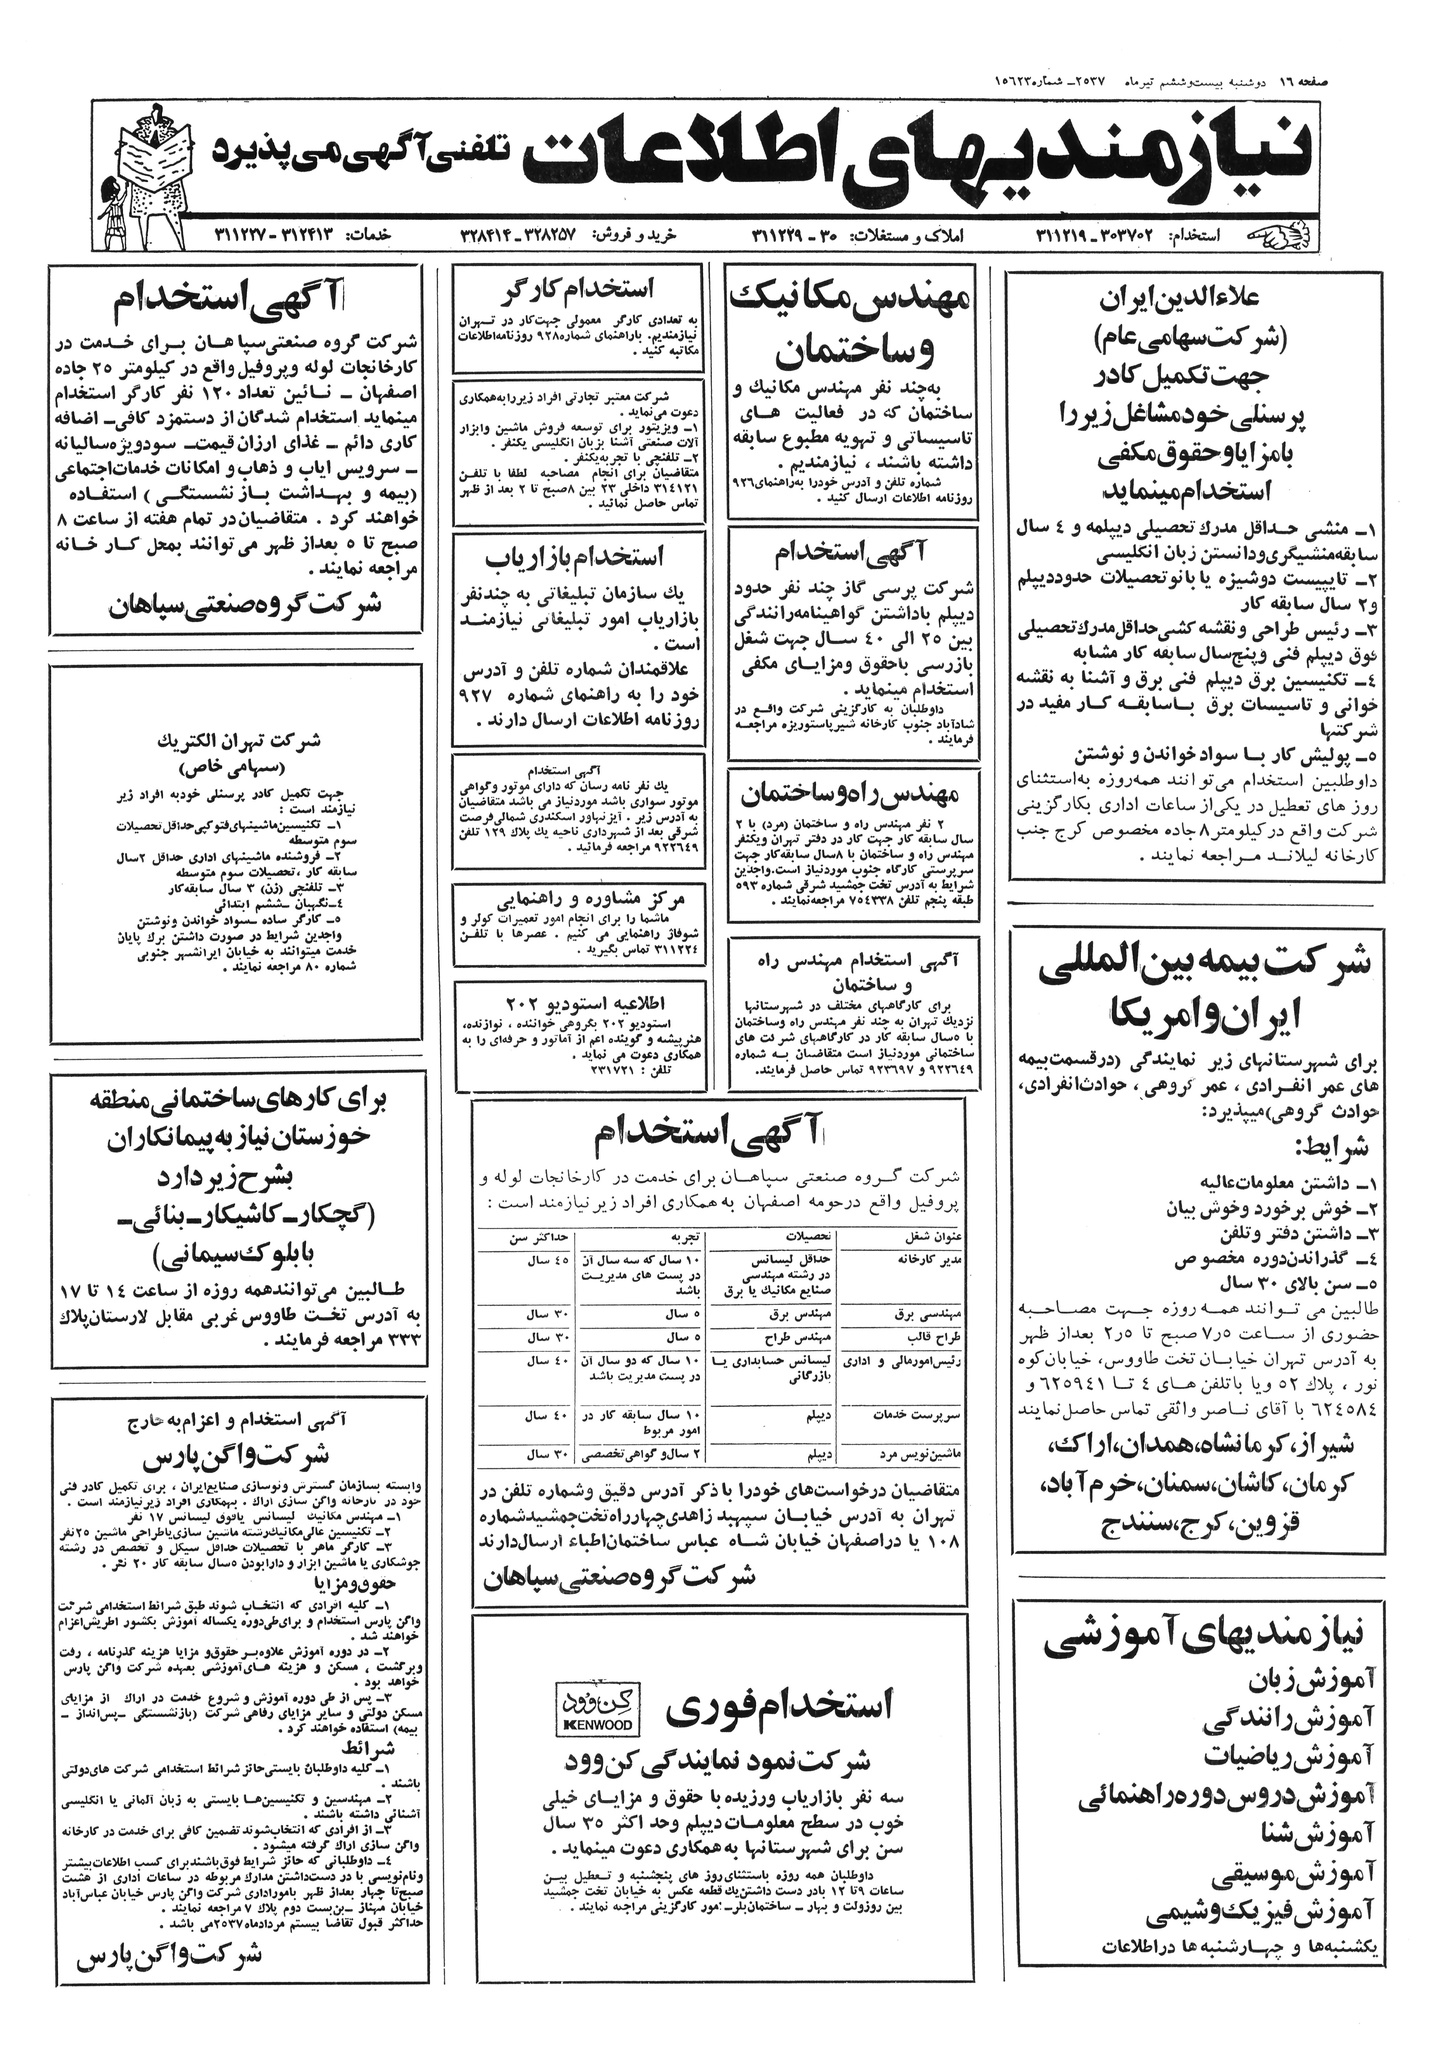 صفحه ۱۶ دوشنبه بیست‌وششم تیرماه ۲۵۳۷ـ شماره ۱۵۶۲۳
نیازمندیهای اطلاعات تلفنی آگهی می‌پذیرد
استخدام: ۳۰۳۷۰۲ـ ۳۱۱۲۱۹ املاک و مستغلات: ۳۰ - ۳۱۱۲۲۹ خرید و فروش: ۳۲۸۲۵۷ - ۳۲۸۴۱۴ خدمات: ۳۱۲۴۱۳ - ۳۱۱۲۲۷
علاءالدین ایران
(شرکت سهامی عام)
جهت تکمیل کادر
پرسنلی خود مشاغل زیر را
با مزایا و حقوق مکفی
استخدام مینماید
۱ـ منشی حداقل مدرك تحصیلی دیپلمه و ۴ سال
سابقه منشیگری و دانستن زبان انگلیسی
۲ـ تایپیست دوشیزه یا بانو تحصیلات حدود دیپلم
و ۲ سال سابقه کار
۳ـ رئیس طراحی و نقشه کشی حداقل مدرك تحصیلی
فوق دیپلم فنی و پنج سال سابقه کار مشابه
۴ـ تکنیسین برق دیپلم فنی برق و آشنا به نقشه
خوانی و تاسیسات برق با سابقه کار مفید در
شرکتها
۵ـ پولیش کار با سواد خواندن و نوشتن
داوطلبین استخدام می‌توانند همه روزه به استثنای
روز های تعطیل در یکی از ساعات اداری بکارگزینی
شرکت واقع در کیلومتر ۸ جاده مخصوص کرج جنب
کارخانه لیلاند مراجعه نمایند .
شرکت بیمه بین‌المللی
ایران و امریکا
برای شهرستانهای زیر نمایندگی (در قسمت بیمه
های عمر انفرادی ، عمر گروهی ، حوادث انفرادی،
حوادث گروهی) میپذیرد:
شرایط:
۱ـ داشتن معلومات عالیه
۲ـ خوش برخورد و خوش بیان
۳ـ داشتن دفتر و تلفن
۴ـ گذراندن دوره مخصوص
۵ـ سن بالای ۳۰ سال
طالبین می توانند همه روزه جهت مصاحبه
حضوری از ساعت ۷٫۵ صبح تا ۲٫۵ بعداز ظهر
به آدرس تهران خیابان تخت طاووس، خیابان کوه
نور ، پلاك ۵۲ و یا با تلفن های ۴ تا ۶۲۵۹۴۱ و
۶۲۴۵۸۴ با آقای ناصر واثقی تماس حاصل نمایند
شیراز، کرمانشاه، همدان، اراك،
کرمان، کاشان، سمنان، خرم آباد،
قزوین، کرج، سنندج
نیازمندیهای آموزشی
آموزش زبان
آموزش رانندگی
آموزش ریاضیات
آموزش دروس دوره راهنمائی
آموزش شنا
آموزش موسیقی
آموزش فیزیك و شیمی
یکشنبه‌ها و چهارشنبه ها در اطلاعات
مهندس مکانیك
و ساختمان
به چند نفر مهندس مکانیك و
ساختمان که در فعالیت های
تاسیساتی و تهویه مطبوع سابقه
داشته باشند ، نیازمندیم .
شماره تلفن و آدرس خود را به راهنمای ۹۲۶
روزنامه اطلاعات ارسال کنید .
آگهی استخدام
شرکت پرسی گاز چند نفر حدود
دیپلم با داشتن گواهینامه رانندگی
بین ۲۵ الی ۴۰ سال جهت شغل
بازرسی با حقوق و مزایای مکفی
استخدام مینماید .
داوطلبان به کارگزینی شرکت واقع در
شادآباد جنوب کارخانه شیر پاستوریزه مراجعه
فرمایند .
مهندس راه و ساختمان
۲ نفر مهندس راه و ساختمان (مرد) با ۲
سال سابقه کار جهت کار در دفتر تهران و یکنفر
مهندس راه و ساختمان با ۸ سال سابقه کار جهت
سرپرستی کارگاه جنوب موردنیاز است. واجدین
شرایط به آدرس تخت جمشید شرقی شماره ۵۹۳
طبقه پنجم تلفن ۷۵۴۳۳۸ مراجعه نمایند .
آگهی استخدام مهندس راه
و ساختمان
برای کارگاههای مختلف در شهرستانها
نزدیك تهران به چند نفر مهندس راه و ساختمان
با ۵ سال سابقه کار در کارگاههای شرکت های
ساختمانی موردنیاز است متقاضیان به شماره
۹۲۲۶۴۹ و ۹۲۳۶۹۷ تماس حاصل فرمایند.
استخدام کارگر
به تعدادی کارگر معمولی جهت کار در تهران
نیازمندیم. با راهنمای شماره ۹۲۸ روزنامه اطلاعات
مکاتبه کنید .
شرکت معتبر تجارتی افراد زیر را به همکاری
دعوت می‌نماید .
۱ـ ویزیتور برای توسعه فروش ماشین و ابزار
آلات صنعتی آشنا بزبان انگلیسی یکنفر .
۲ـ تلفنچی با تجربه یکنفر .
متقاضیان برای انجام مصاحبه لطفا با تلفن
۳۱۴۱۲۱ داخلی ۲۳ بین ۸ صبح تا ۲ بعد از ظهر
تماس حاصل نمائید .
استخدام بازاریاب
یك سازمان تبلیغاتی به چند نفر
بازاریاب امور تبلیغاتی نیازمند
است .
علاقمندان شماره تلفن و آدرس
خود را به راهنمای شماره ۹۲۷
روزنامه اطلاعات ارسال دارند .
آگهی استخدام
یك نفر نامه رسان که دارای موتور و گواهی
موتور سواری باشد موردنیاز می باشد متقاضیان
به آدرس زیر . آیزنهاور اسکندری شمالی فرصت
شرقی بعد از شهرداری ناحیه یك پلاك ۱۲۹ تلفن
۹۲۲۶۴۹ مراجعه فرمائید .
مرکز مشاوره و راهنمایی
ما شما را برای انجام امور تعمیرات کولر و
شوفاژ راهنمایی می کنیم . عصرها با تلفن
۳۱۱۲۲۴ تماس بگیرید .
اطلاعیه استودیو ۲۰۲
استودیو ۲۰۲ بگروهی خواننده ، نوازنده،
هنرپیشه و گوینده اعم از آماتور و حرفه‌ای را به
همکاری دعوت می نماید .
تلفن : ۲۳۱۷۲۱
آگهی استخدام
شرکت گروه صنعتی سپاهان برای خدمت در کارخانجات لوله و
پروفیل واقع در حومه اصفهان به همکاری افراد زیر نیازمند است :
عنوان شغل تحصیلات تجربه حداکثر سن
مدیر کارخانه حداقل لیسانس ۱۰ سال که سه سال آن ۴۵ سال
در رشته مهندسی در پست های مدیریت
صنایع مکانیك یا برق باشد
مهندسی برق مهندس برق ۵ سال ۳۰ سال
طراح قالب مهندس طراح ۵ سال ۳۰ سال
رئیس امور مالی و اداری لیسانس حسابداری یا ۱۰ سال که دو سال آن ۴۰ سال
بازرگانی در پست مدیریت باشد
سرپرست خدمات دیپلم ۱۰ سال سابقه کار در ۴۰ سال
امور مربوط
ماشین نویس مرد دیپلم ۲ سال و گواهی تخصصی ۳۰ سال
متقاضیان درخواست‌های خود را با ذکر آدرس دقیق و شماره تلفن در
تهران به آدرس خیابان سپهبد زاهدی چهارراه تخت جمشید شماره
۱۰۸ یا در اصفهان خیابان شاه عباس ساختمان اطباء ارسال دارند
شرکت گروه صنعتی سپاهان
استخدام فوری
کن وود
KENWOOD
شرکت نمود نمایندگی کن وود
سه نفر بازاریاب ورزیده با حقوق و مزایای خیلی
خوب در سطح معلومات دیپلم و حد اکثر ۳۵ سال
سن برای شهرستانها به همکاری دعوت مینماید .
داوطلبان همه روزه باستثنای روز های پنجشنبه و تعطیل بین
ساعات ۹ تا ۱۲ با در دست داشتن یك قطعه عکس به خیابان تخت جمشید
بین روزولت و بهار ـ ساختمان بلر ـ امور کارگزینی مراجعه نمایند .
آگهی استخدام
شرکت گروه صنعتی سپاهان برای خدمت در
کارخانجات لوله و پروفیل واقع در کیلومتر ۲۵ جاده
اصفهان ـ نائین تعداد ۱۲۰ نفر کارگر استخدام
مینماید استخدام شدگان از دستمزد کافی ـ اضافه
کاری دائم ـ غذای ارزان قیمت ـ سود ویژه سالیانه
ـ سرویس ایاب و ذهاب و امکانات خدمات اجتماعی
(بیمه و بهداشت بازنشستگی) استفاده
خواهند کرد . متقاضیان در تمام هفته از ساعت ۸
صبح تا ۵ بعداز ظهر می‌توانند بمحل کارخانه
مراجعه نمایند .
شرکت گروه صنعتی سپاهان
شرکت تهران الکتریك
(سهامی خاص)
جهت تکمیل کادر پرسنلی خود به افراد زیر
نیازمند است :
۱ـ تکنیسین ماشینهای فتوکپی حداقل تحصیلات
سوم متوسطه
۲ـ فروشنده ماشینهای اداری حداقل ۲ سال
سابقه کار ، تحصیلات سوم متوسطه
۳ـ تلفنچی (زن) ۳ سال سابقه کار
۴ـ نگهبان ـ ششم ابتدائی
۵ـ کارگر ساده ـ سواد خواندن و نوشتن
واجدین شرایط در صورت داشتن برك پایان
خدمت میتوانند به خیابان ایرانشهر جنوبی
شماره ۸۰ مراجعه نمایند .
برای کارهای ساختمانی منطقه
خوزستان نیاز به پیمانکاران
بشرح زیر دارد
(گچکار ـ کاشیکار ـ بنائی ـ
با بلوك سیمانی)
طالبین می‌توانند همه روزه از ساعت ۱۴ تا ۱۷
به آدرس تخت طاووس غربی مقابل لارستان پلاك
۳۳۳ مراجعه فرمایند .
آگهی استخدام و اعزام به خارج
شرکت واگن پارس
وابسته بسازمان گسترش و نوسازی صنایع ایران ، برای تکمیل کادر فنی
خود در کارخانه واگن سازی اراك . بهمکاری افراد زیر نیازمند است .
۱ـ مهندس مکانیك لیسانس یا فوق لیسانس ۱۷ نفر
۲ـ تکنیسین عالی مکانیك رشته ماشین سازی یا طراحی ماشین ۲۵ نفر
۳ـ کارگر ماهر با تحصیلات حداقل سیکل و تخصص در رشته
جوشکاری یا ماشین ابزار و دارا بودن ۵ سال سابقه کار ۲۰ نفر .
حقوق و مزایا
۱ـ کلیه افرادی که انتخاب شوند طبق شرائط استخدامی شرکت
واگن پارس استخدام و برای طی دوره یکساله آموزش بکشور اطریش اعزام
خواهند شد .
۲ـ در دوره آموزش علاوه بر حقوق و مزایا هزینه گذرنامه ، رفت
و برگشت ، مسکن و هزینه های آموزشی بعهده شرکت واگن پارس
خواهد بود .
۳ـ پس از طی دوره آموزش و شروع خدمت در اراك از مزایای
مسکن دولتی و سایر مزایای رفاهی شرکت (بازنشستگی ـ پس‌انداز ـ
بیمه) استفاده خواهند کرد .
شرائط
۱ـ کلیه داوطلبان بایستی حائز شرائط استخدامی شرکت های دولتی
باشند .
۲ـ مهندسین و تکنیسین‌ها بایستی به زبان آلمانی یا انگلیسی
آشنائی داشته باشند .
۳ـ از افرادی که انتخاب شوند تضمین کافی برای خدمت در کارخانه
واگن سازی اراك گرفته میشود .
۴ـ داوطلبانی که حائز شرایط فوق باشند برای کسب اطلاعات بیشتر
و نام نویسی با در دست داشتن مدارك مربوطه در ساعات اداری از هشت
صبح تا چهار بعداز ظهر بامور اداری شرکت واگن پارس خیابان عباس آباد
خیابان مهناز ـ بن‌بست دوم پلاك ۷ مراجعه نمایند .
حداکثر قبول تقاضا بیستم مردادماه ۲۵۳۷ می باشد .
شرکت واگن پارس